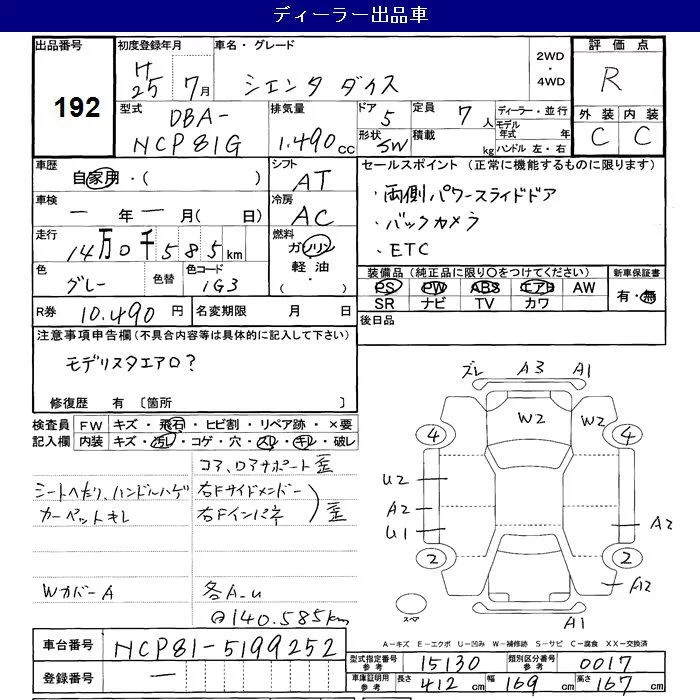 ディーラー出品車
出品番号 192
初度登録年月 H25年 7月
車名・グレード シエンタ ダイス
2WD・4WD
評価点 R
外装 C 内装 C
型式 DBA-NCP81G
排気量 1.490cc
ドア 5 形状 SW
定員 7人 積載 kg
ディーラー・並行
モデル年式 年
ハンドル 左・右
車歴 自家用・( )
シフト AT
セールスポイント (正常に機能するものに限ります)
・両側パワースライドドア
・バックカメラ
・ETC
車検 ー年ー月( 日)
冷房 AC
走行 14万0千585km
燃料 ガソリン 軽油・
色 グレー 色替 色コード 1G3
装備品 (純正品に限り○をつけてください)
PS PW ABS エアB AW
SR ナビ TV カワ
新車保証書 有・無
R券 10.490円
名変期限 月 日
後日品
注意事項申告欄(不具合内容等は具体的に記入して下さい)
モデリスタエアロ?
修復歴 有 〔箇所 〕
検査員記入欄
FW キズ・飛石・ヒビ割・リペア跡・×要
内装 キズ・汚れ・コゲ・穴・スレ・キレ・破レ
コア、ロアサポート歪
シートヘタリ、ハンドルハゲ
カーペットキレ
右Fサイドメンバー
右Fインパネ
歪
Wカバー A
各A-U
@140.585km
ズレ A3 A1
W2 W2
4 4
U2
A2
U1
A2
2 2
A2
A1
スペア
A-キズ E-エクボ U-凹み W-補修跡 S-サビ C-腐食 XX-交換済
車台番号 NCP81-5199252
登録番号 ー
型式指定番号 参考 15130
類別区分番号 参考 0017
車庫証明用 参考 長さ 412 cm 幅 169 cm 高さ 167 cm